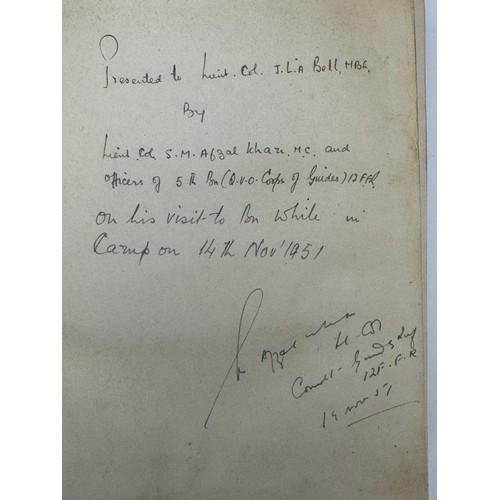 Presented to Lieut. Col. J.L.A Bell, MBE,
By
Lieut. Col. S.M. Afzal Khan. M.C. and
officers of 5th Bn (Q.V.O. Corps of Guides) 12 F.F.R,
on his visit to Bn while in
Camp on 14th Nov' 1951
Afzal
Lt Col
Comdt Guides
12 F.F.R
Nov 51